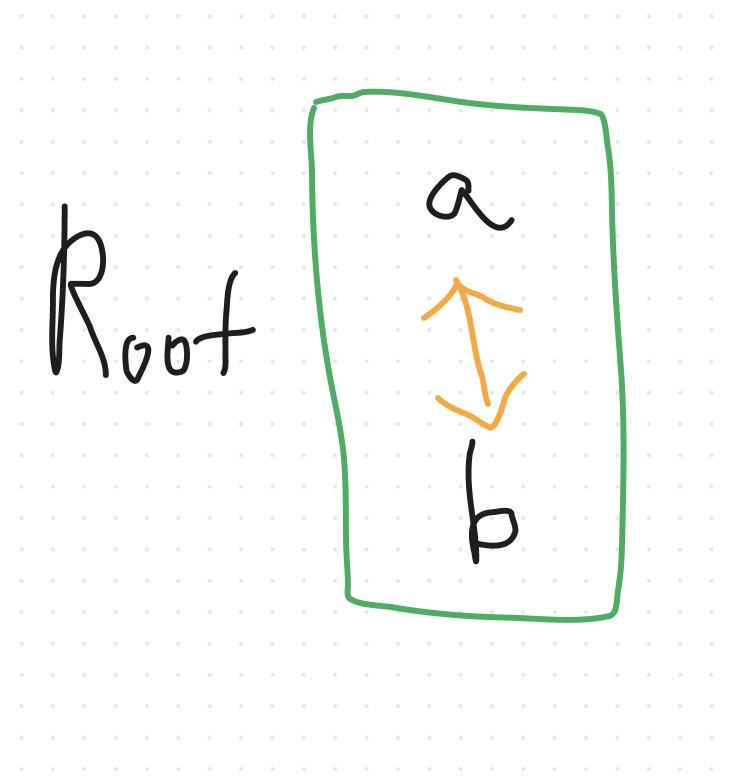 Root
a
b